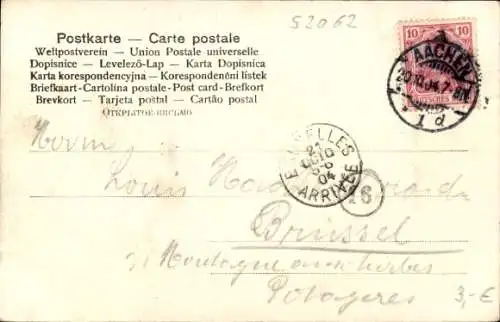 52062
Postkarte — Carte postale
Weltpostverein — Union Postale universelle
Dopisnice — Levelező-Lap — Karta Dopisnica
Karta korespondencyjna — Korespondenční lístek
Briefkaart - Cartolina postale - Post card - Brefkort
Brevkort — Tarjeta postal — Cartão postal
ОТКРЫТОЕ ПИСЬМО
10 10
AACHEN
1 d
BRUXELLES
21
04
ARRIVEE
16
Herrn
Louis
Brüssel
Montagne aux herbes
Potageres
3,-€